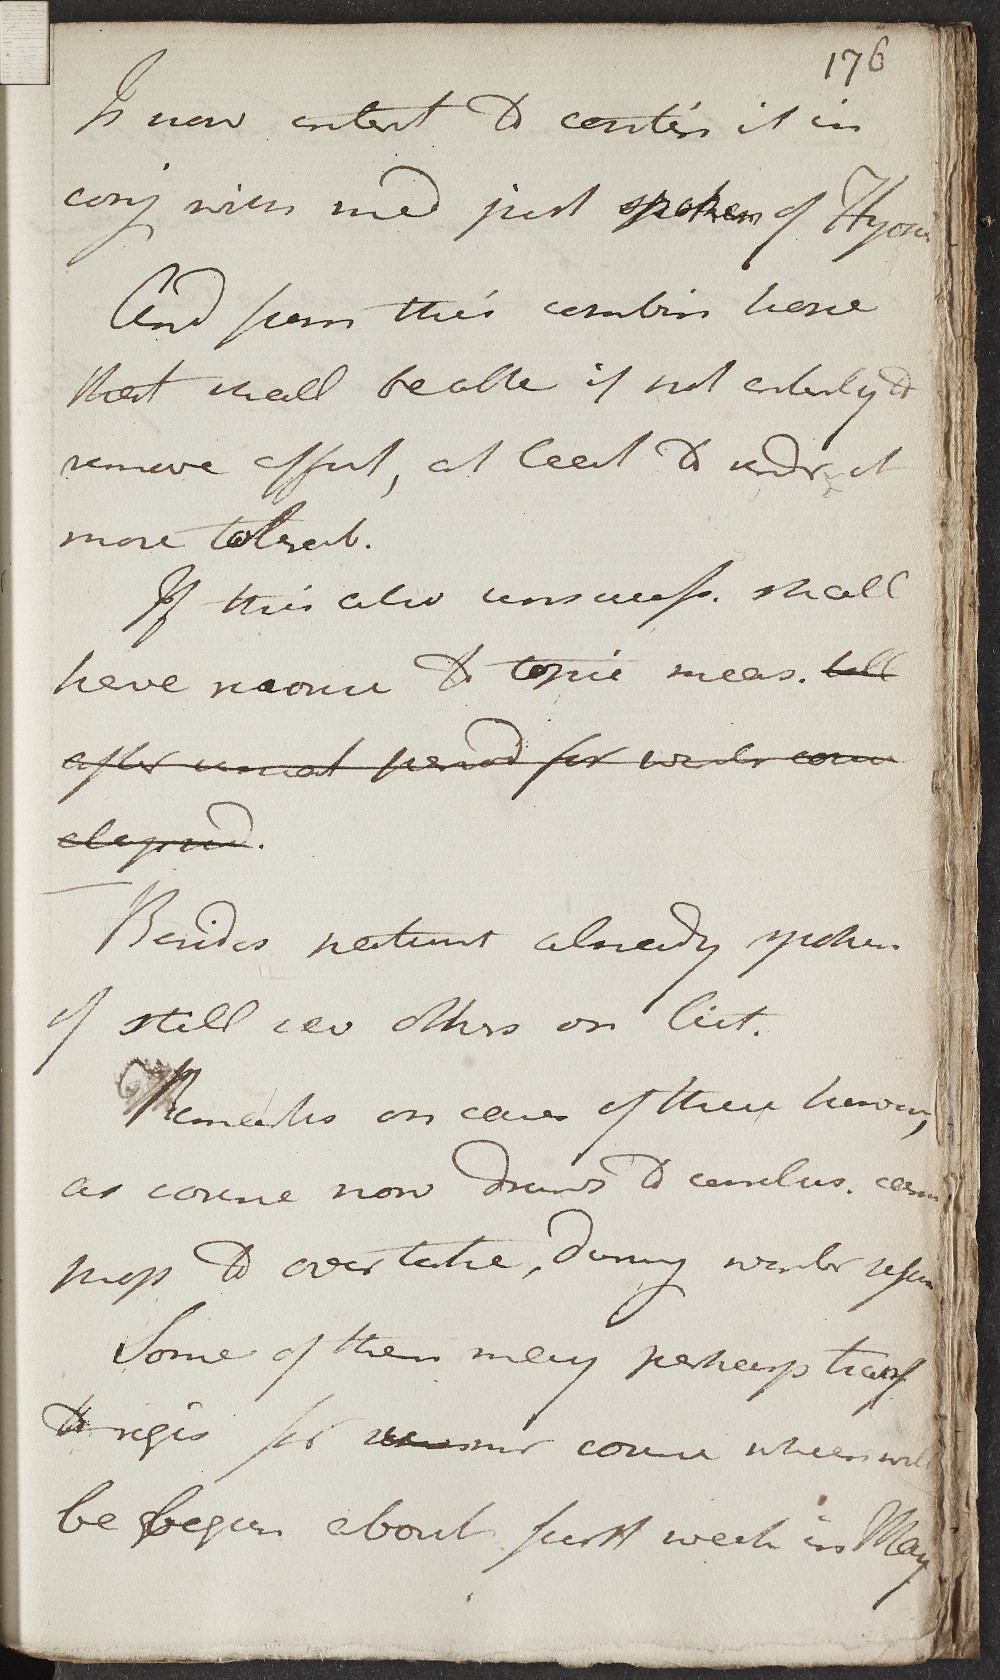 176
Is now intent to contin it in
conj with med just spoken of Hyosci
And from this combin hope
that shall be able if not enterly to
remove affect, at least to rendr it
more tolerab.
If this also unsuccessf. shall
have recourse to topic meas. till
after usual period for winter course
elapsed.
Besides patient already spoken
of still sev others on list.
Remarks on cases of these however,
as course now draws to conclus. can
not to overtake, during winter
Some of them may perhaps transf
to regis for summr course which will
be begun about first week in May